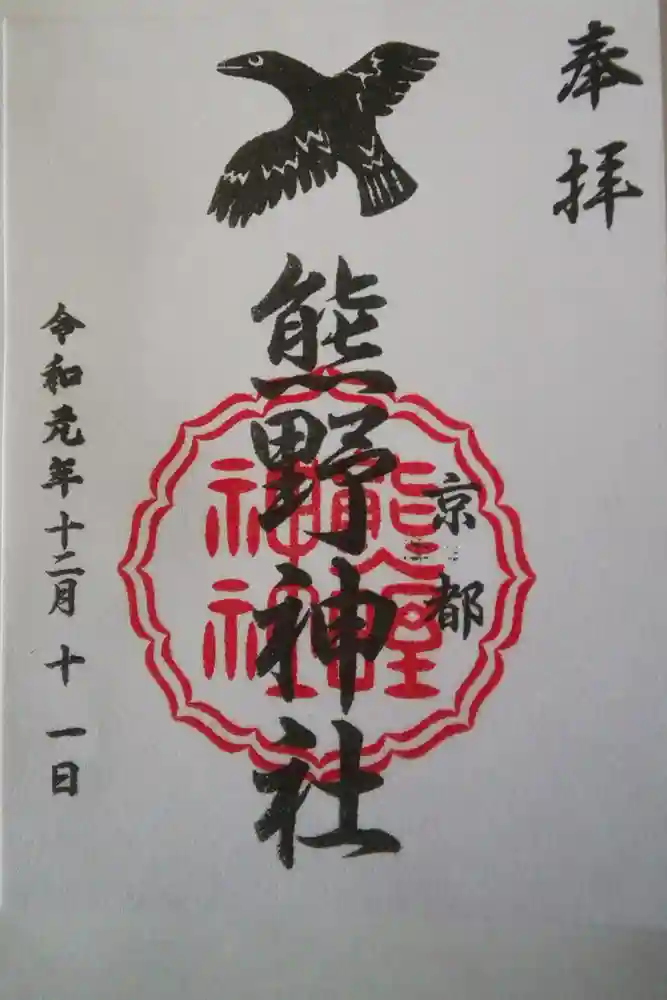 奉拝
京都
熊野神社
熊野
神社
令和元年十二月十一日